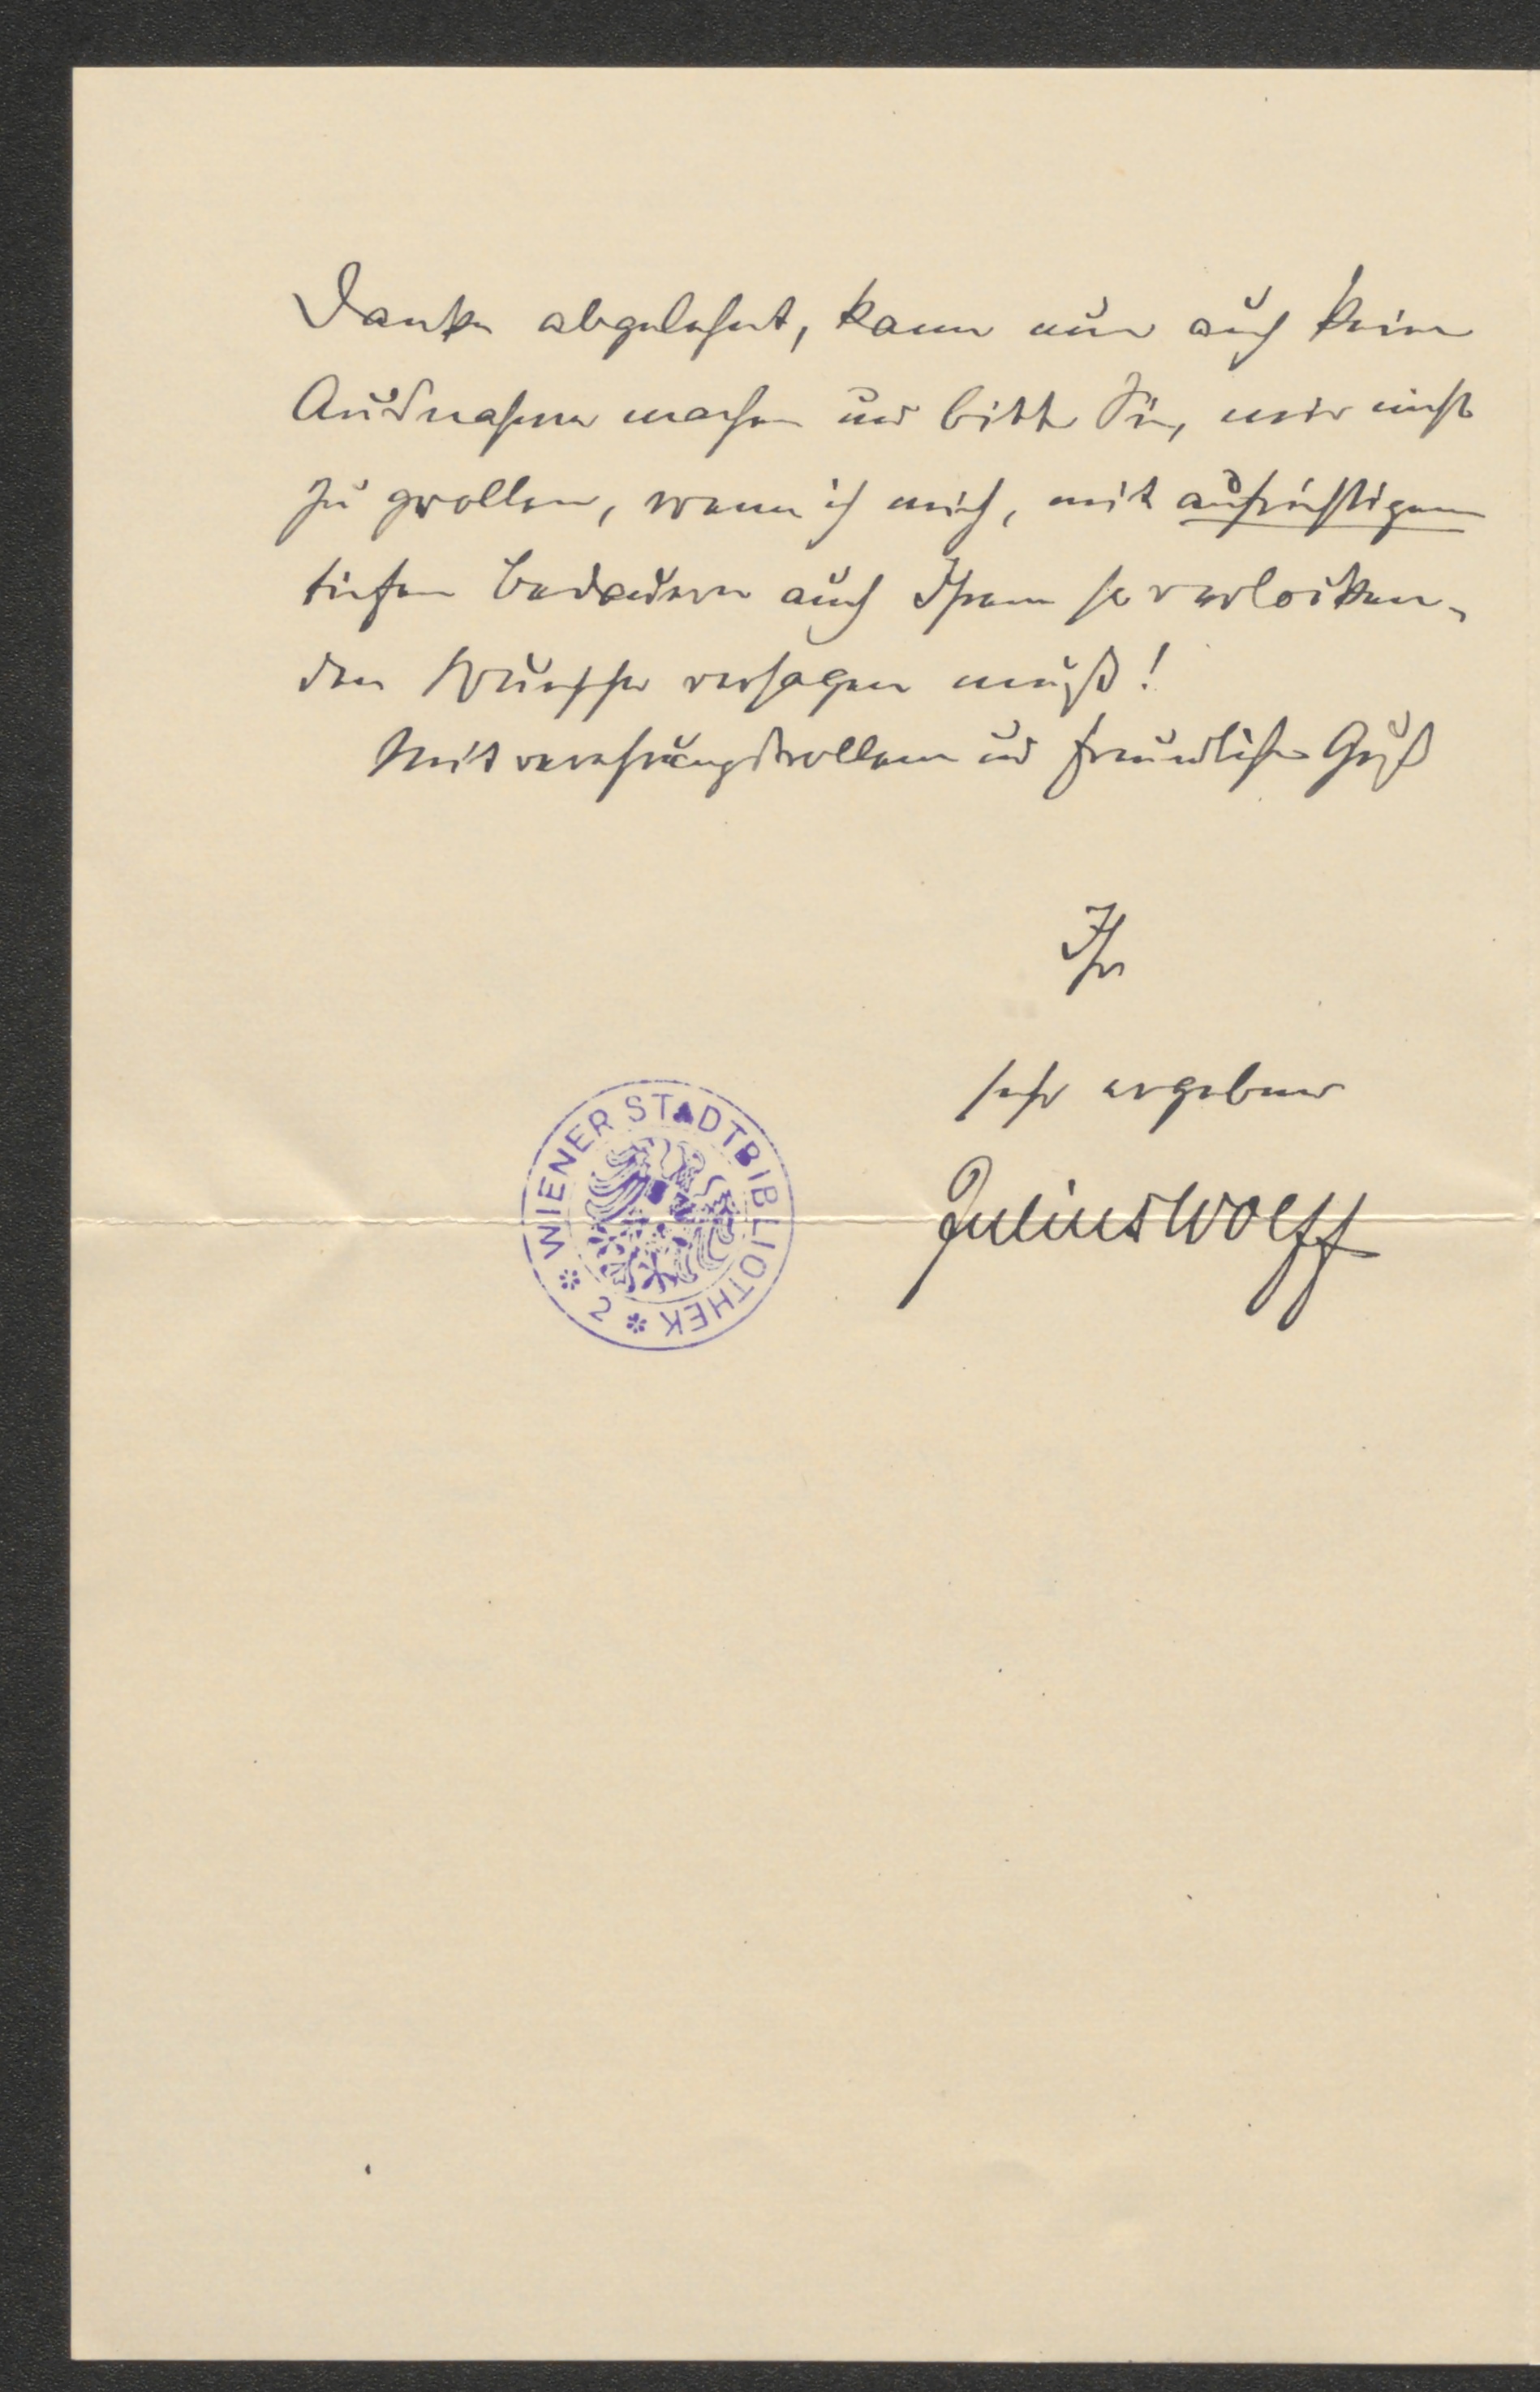 Danke abgelehnt, kann nun auch keine
Ausnahme machen und bitte Sie, mir nicht
zu grollen, wenn ich mich, mit aufrichtigem
tiefen Bedauern auch Ihrem so verlocken-
den Wunsche versagen muß!
Mit verehrungsvollem und freundlichem Gruß
Ihr
sehr ergebener
Julius Wolff
* WIENER STADTBIBLIOTHEK * 2